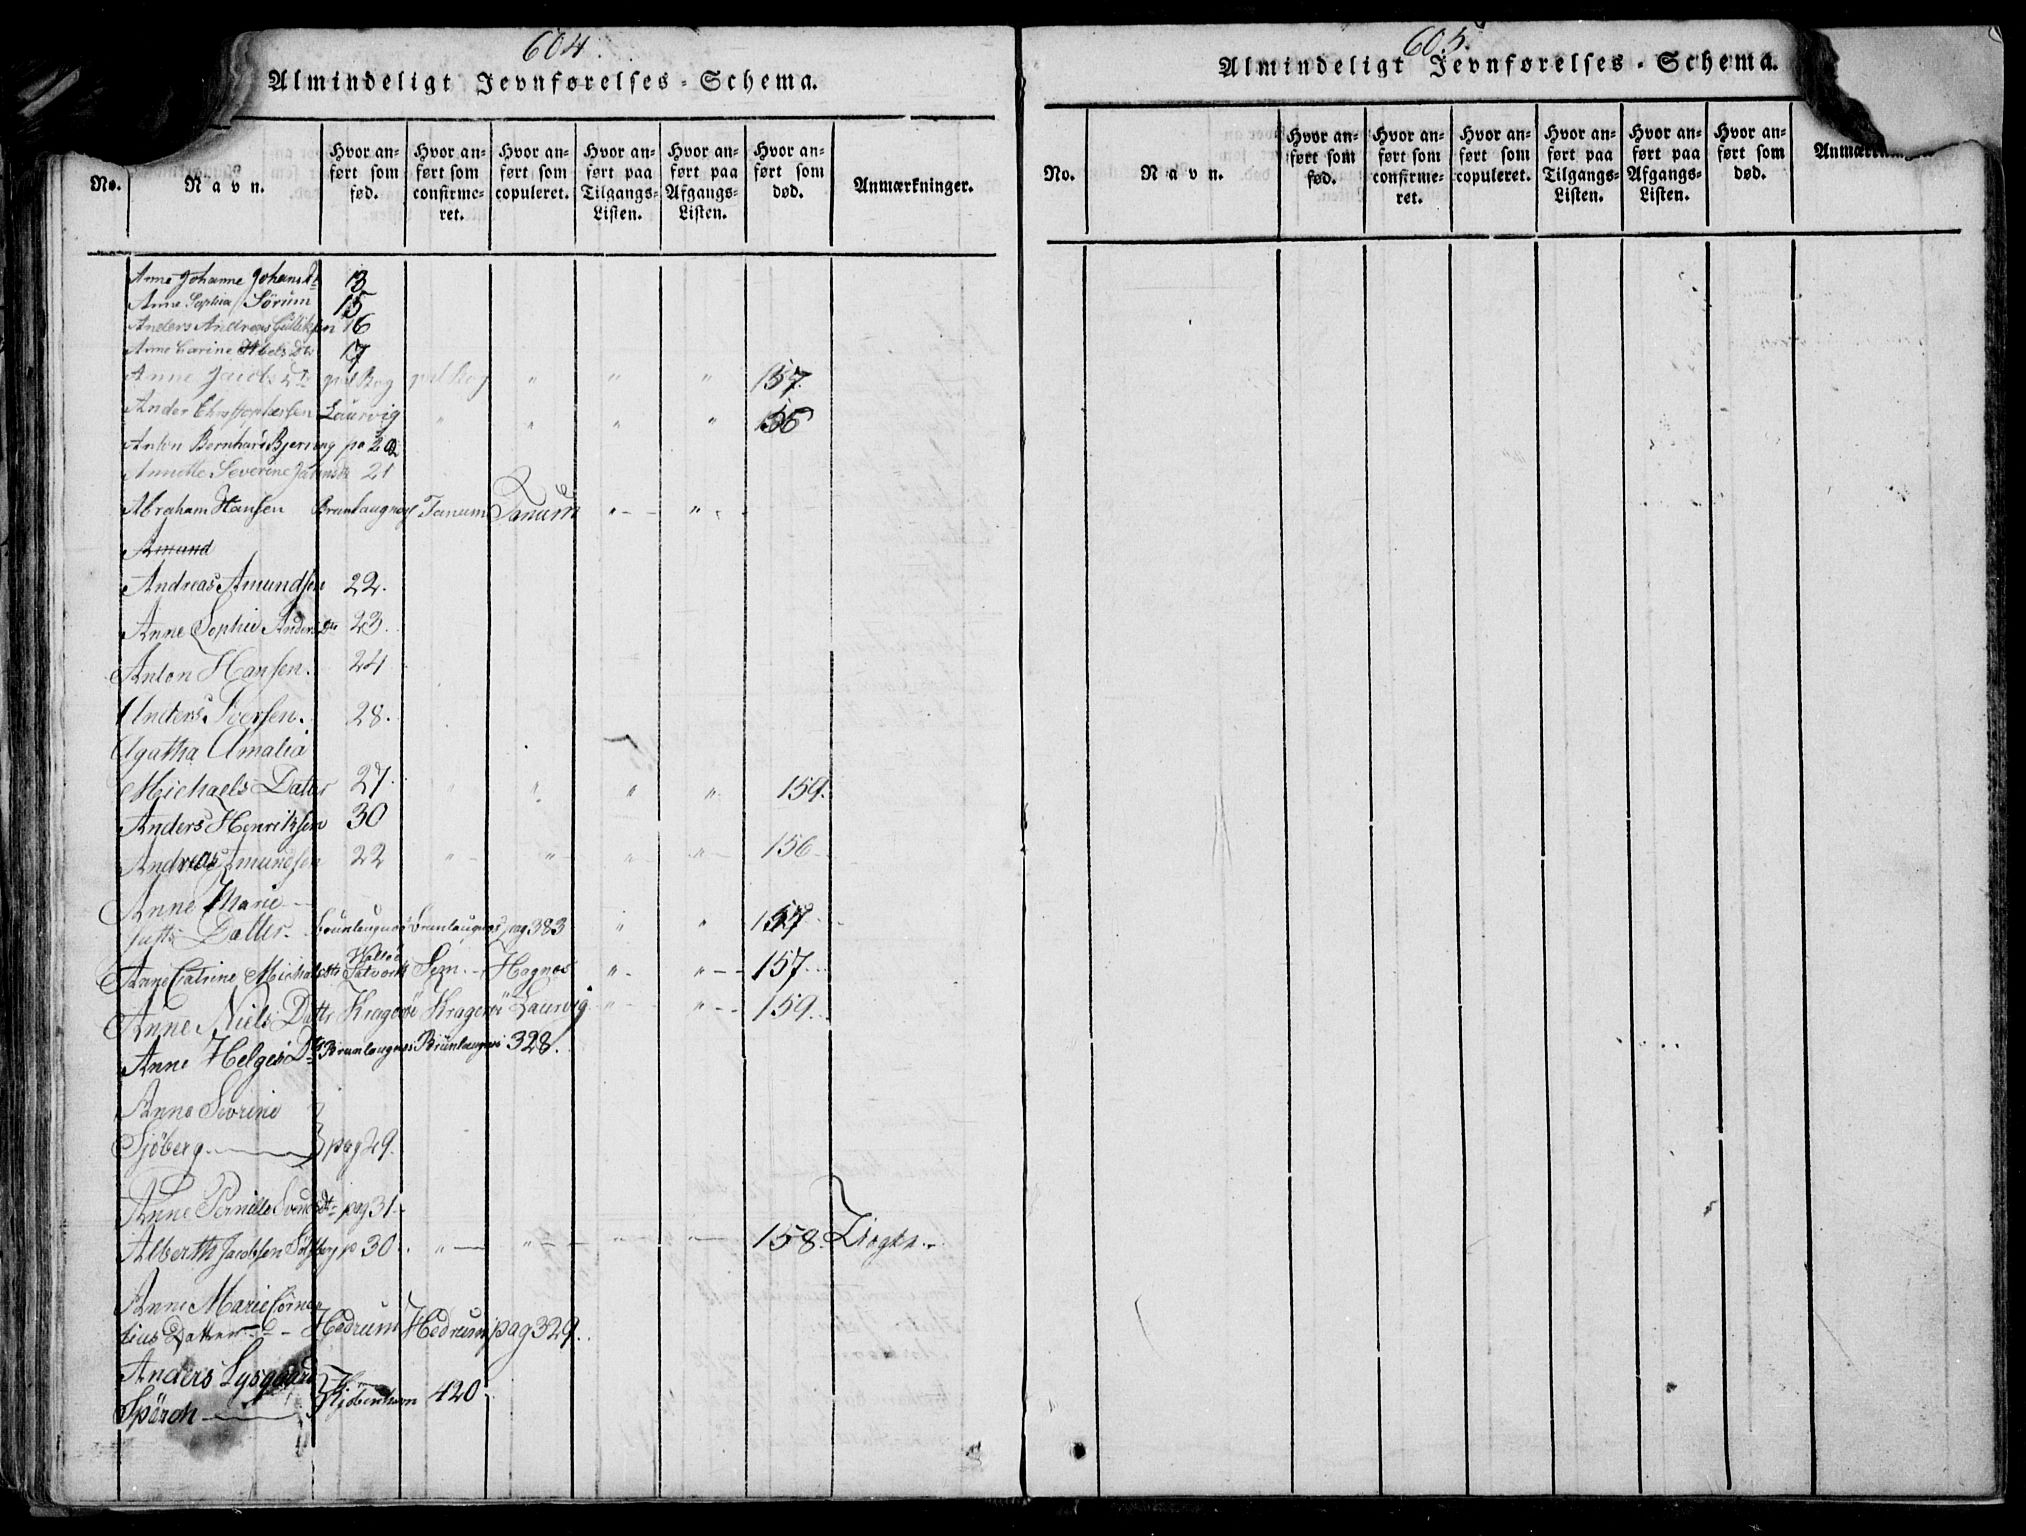 604.
Almindeligt Jevnførelses-Schema.
No.
Navn.
Hvor anført som fød.
Hvor anført som confirmeret.
Hvor anført som copuleret.
Hvor anført paa Tilgangs-Listen.
Hvor anført paa Afgangs-Listen.
Hvor anført som død.
Anmærkninger.
Anne Johanne Johansdt 13
Anne Sophia Sörum 15
Anders Andreas Gulliksen 16
Anne Carine Abels Dtr 17
Anne 157.
Christophersen Laurvig " " " " 156
Anton Bernhard Bjerring pa 20
Annette Severine 21
Abraham Hansen Brunlaugnæs Tanum Tanum " - - " -
Amund
Andreas Amundsen 22.
Anne Sophie Anders Dtr 23.
Anton Hansen. 24
Anders Iversen. 28.
Agatha Amalia
Michaels Datter 27. " " " " 159.
Anders Henriksen 30
Andreas Amundsen 22 " - " - " - " - 156
Anne Marie
Datter. Brunlaugnæs Brunlaugnæs pag 383 " " 157
Anne Catrine Michelsdtr Sem. Hagnes " - " - - 157.
Anne Niels Dattr Kragerøe Kragerøe Laurvig " - " - - 159.
Anne Helges Dtr Brunlaugnæs Brunlaugnæs 328.
Anne Sevrine
Sjöberg pag 29.
Anne Pernille Svends Dt- pag 31.
Alberth Jacobsen Solberg p 30. " - " - " - " - 158.
Anne Marie Corne-
lius Datter Hedrum Hedrum pag 329.
Anders Lysgaard
Spärch Kjöbenhavn 420
605.
Almindeligt Jevnførelses-Schema.
No.
Navn.
Hvor anført som fød.
Hvor anført som confirmeret.
Hvor anført som copuleret.
Hvor anført paa Tilgangs-Listen.
Hvor anført paa Afgangs-Listen.
Hvor anført som død.
Anmærkninger.